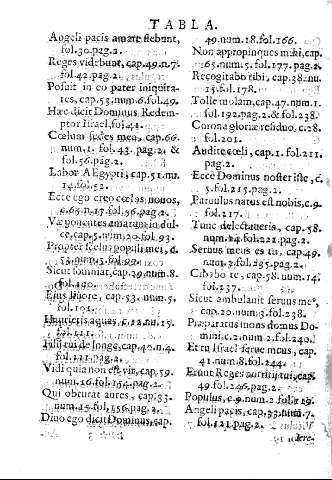 TABLA.
Angeli pacis amarè flebunt,
fol.30.pag.2.
Reges videbunt, cap.49.n.7.
fol.42.pag.2.
Posuit in eo pater iniquita-
tes, cap.53.num.6.fol.49.
Hæc dicit Dominus Redem-
ptor Israel, fol.41.
Cœlum sedes mea, cap.66.
num.1. fol.43. pag.2. &
fol.56.pag.2.
Labor Ægypti, cap.51.nu.
14.fol.52.
Ecce ego creo cœlos nouos,
c.65.n.17.fol.56.pag.2.
Væ ponentes amarum in dul-
ce, cap.5.num.20.fol.93.
Propter scelus populi mei, c.
53.num.
Sicut somniat, cap.29.num.8.
fol.100.
Eius liuore, cap.53. num.5.
fol.101.
Haurietis aquas, c.12.nu.
fol.121.
Filij tui de longè, cap.40.n.4.
fol.121.pag.2.
Vidi quia non est vir, cap.59.
num.16.fol.154.pag.2.
Qui obturat aures, cap.33.
num.15.fol.156.pag.2.
Diuo ego dicit Dominus, cap.
49.num.18.fol.166.
Non appropinques mihi, cap.
65.num.5.fol.177.pag.2.
Recogitabo tibi, cap.38.nu.
15.fol.178.
Tolle molam, cap.47.num.1.
fol.192.pag.2.& fol.238.
Corona gloriæ residuo, c.28.
fol.201.
Audite cœli, cap.1.fol.211.
pag.2.
Ecce Dominus noster iste, c.
5.fol.215.pag.2.
Paruulus natus est nobis, c.9.
fol.217.
Tunc delectaueris, cap.58.
num.14.fol.221.pag.2.
Seruus meus es tu, cap.49.
num.3.fol.235.pag.2.
Cibabo te, cap.58.num.14.
fol.237.
Sicut ambulauit seruus meᵒ,
cap.20.num.3.fol.238.
Præparatus mons domus Do-
mini, c.2.num.2.fol.240.
Et tu Israel serue meus, cap.
41.num.8.fol.244.
Erunt Reges nutritij tui, cap.
49.fol.246.pag.2.
Populus, c.9.num.2.fol.
Angeli pacis, cap.33.num.7.
fol.121.pag.2.
Iere-